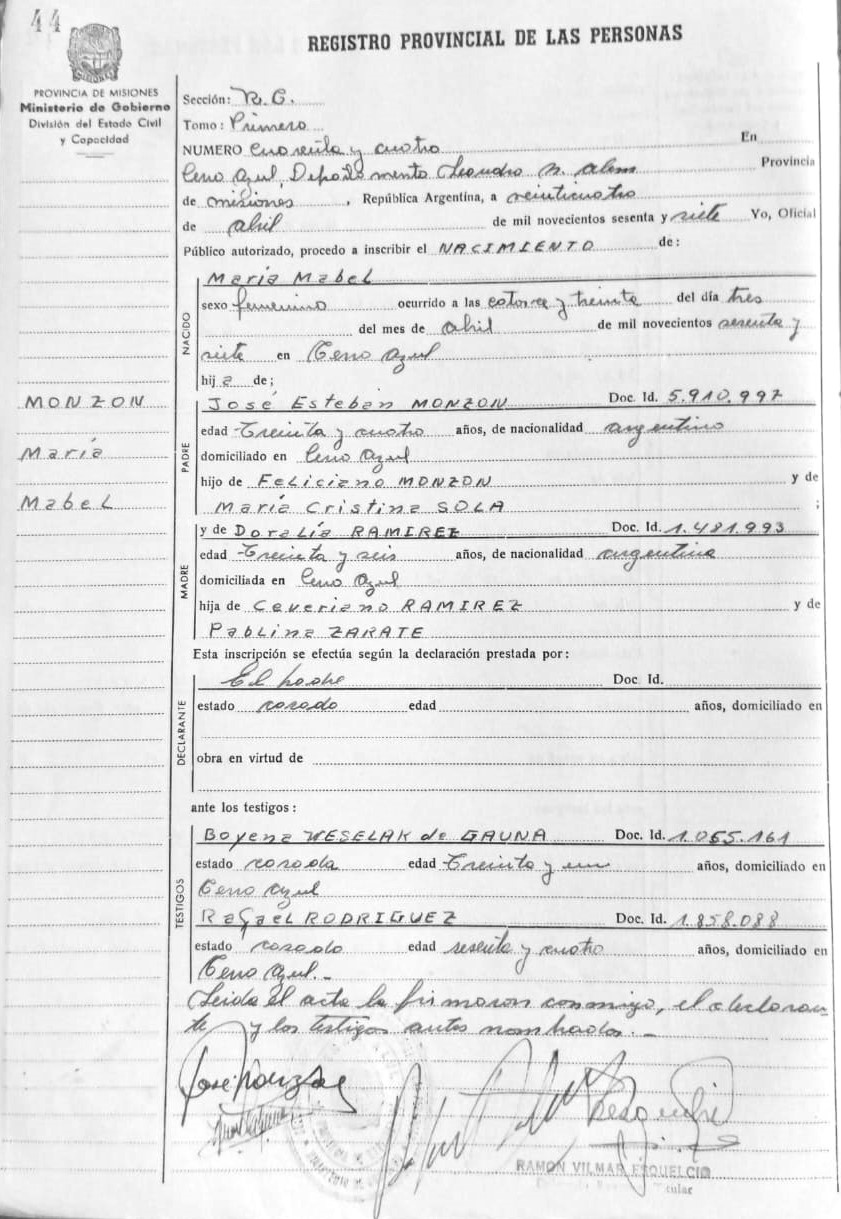 44
REGISTRO PROVINCIAL DE LAS PERSONAS
PROVINCIA DE MISIONES
Ministerio de Gobierno
División del Estado Civil
y Capacidad
Sección: R. C.
Tomo: Primero
NUMERO Cuarenta y cuatro En
Cerro Azul, Departamento Leandro N. Alem Provincia
de Misiones, República Argentina, a veinticuatro
de abril de mil novecientos sesenta y siete Yo, Oficial
Público autorizado, procedo a inscribir el NACIMIENTO de:
NACIDO
María Mabel
sexo femenino ocurrido a las catorce y treinta del día tres
del mes de abril de mil novecientos sesenta y
siete en Cerro Azul
hija de;
MONZON
María
Mabel
PADRE
José Esteban MONZON Doc. Id. 5.910.997
edad Treinta y cuatro años, de nacionalidad argentino
domiciliado en Cerro Azul
hijo de Feliciano MONZON y de
María Cristina SOLA ;
MADRE
y de Doralía RAMIREZ Doc. Id. 1.481.993
edad Treinta y seis años, de nacionalidad argentina
domiciliada en Cerro Azul
hija de Ceveriano RAMIREZ y de
Pablina ZARATE
Esta inscripción se efectúa según la declaración prestada por:
DECLARANTE
El padre Doc. Id.
estado casado edad años, domiciliado en
obra en virtud de
ante los testigos:
TESTIGOS
Boyena WESELAK de GAUNA Doc. Id. 1.055.161
estado casada edad Treinta y un años, domiciliado en
Cerro Azul
Rafael RODRIGUEZ Doc. Id. 1.858.088
estado casado edad sesenta y cuatro años, domiciliado en
Cerro Azul.-
Leída el acta la firmaron conmigo, el declaran-
te y los testigos antes nombrados.-
RAMON VILMAR ESQUELCIO